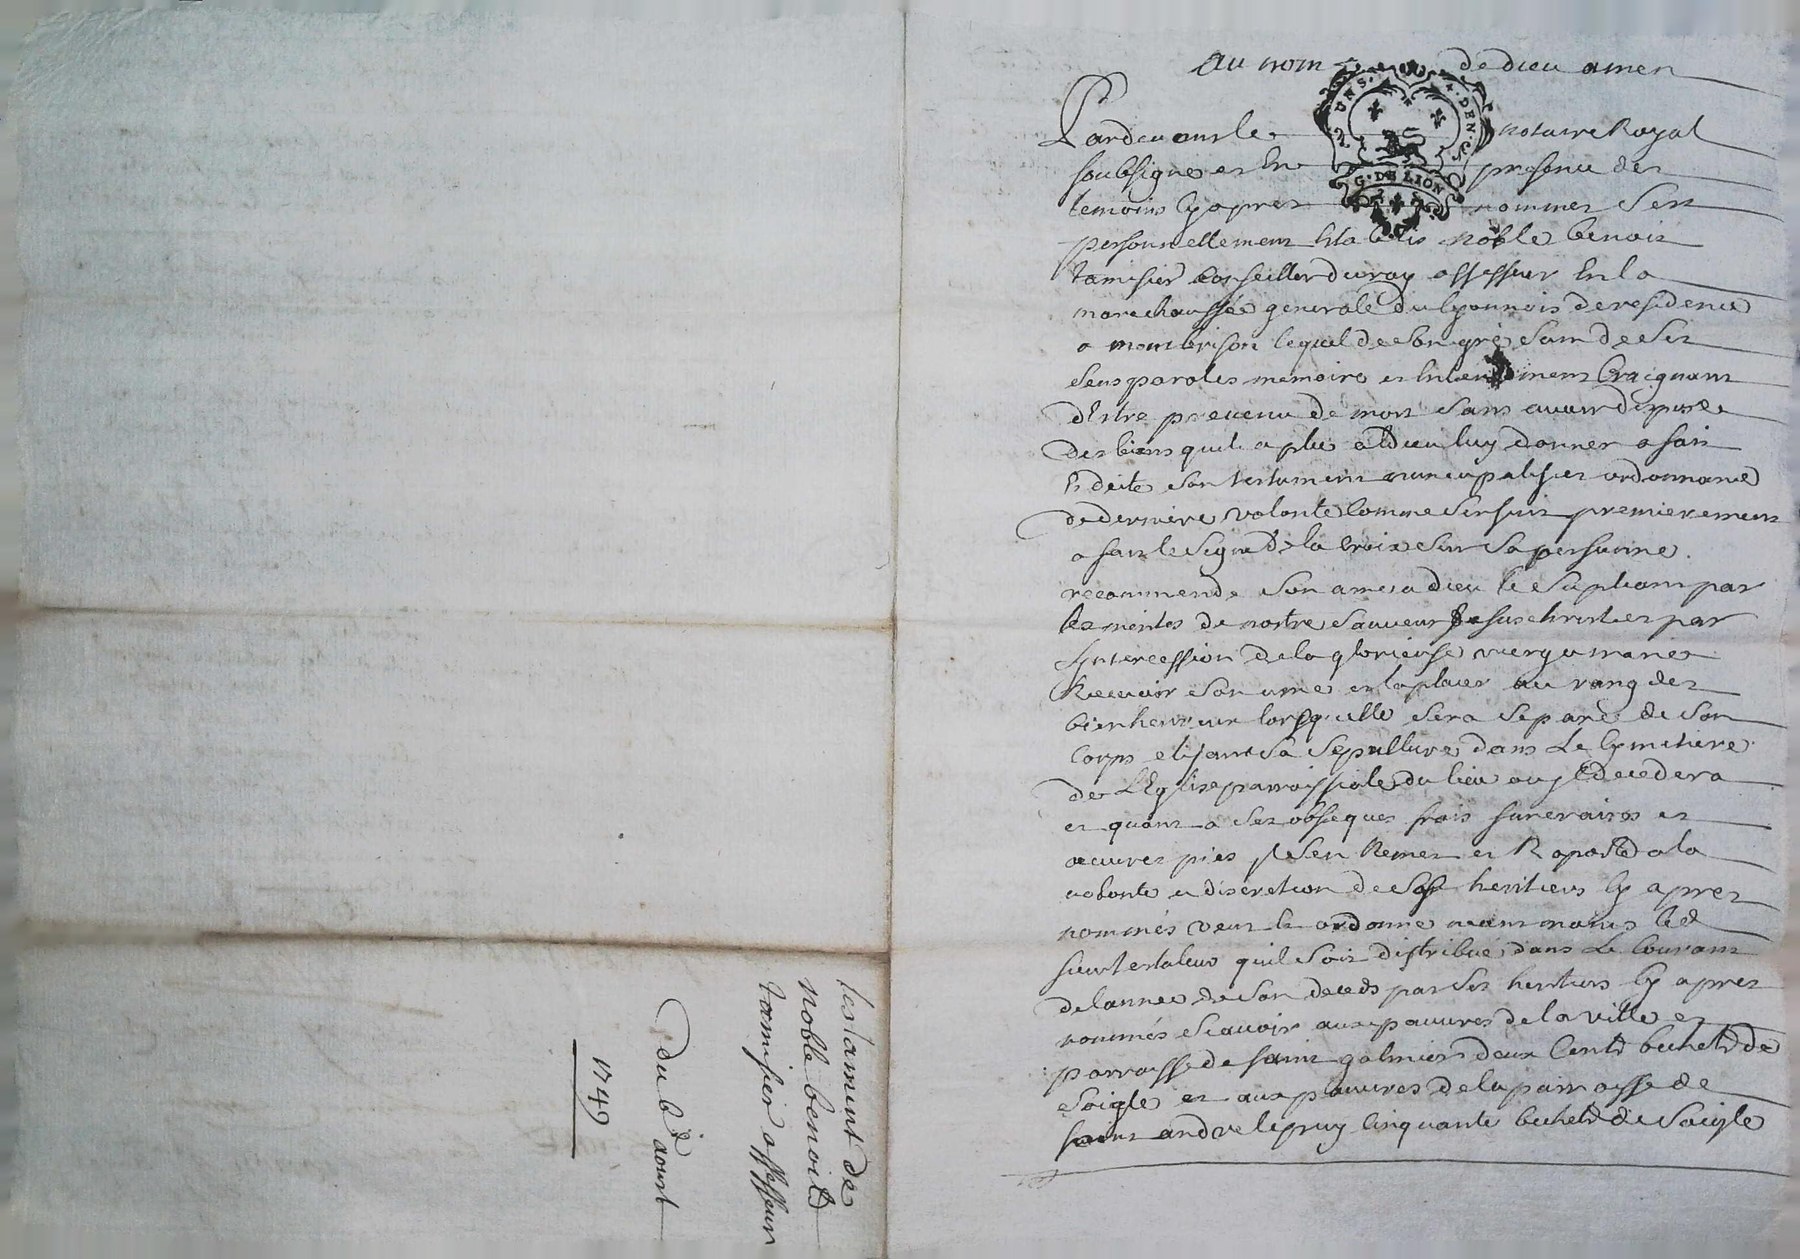 au nom de dieu amen
2. UNS. 4. DEN.
G. DE LION
Pardevant le notaire Royal
soubsigne et En presence des
temoins Cy apres nommes sest
personnellement Establis noble benoit
tamisier Conseiller du roy assesseur En la
marechaussée generale du lyonnois de residence
a montbrison lequel de son gré sain de ses
sens paroles memoire et Entendement Craignant
dEstre prevenu de mort sans avoir disposé
des biens quil a plu a dieu luy donner a fait
Et dicte son testament nuncupatif et ordonnance
de derniere volonte Comme sensuit premierement
a fait le signe de la Croix sur sa personne.
recommende son ame a dieu le supliant par
les merites de nostre sauveur Jesus christ et par
Lyntercession de la glorieuse vierge marie
Recevoir son ame et la placer au rang des
bienheureux lorsquelle sera separé de son
Corps elisant sa sepulture dans Le Cymetiere
de LEglise parroissiale du lieu ou jl decedera
et quant a ses obseques frais funeraires et
œuvres pies jl sen Remet et Raporte a la
volonte et discretion de ses heritiers Cy apres
nommés veut et ordonne neantmoins led
sieur testateur quil soit distribué dans Le Courant
de lannee de son deceds par ses heritiers Cy apres
nommés scavoir aux pauvres de la ville et
parroisse de saint galmier deux Cents bichets de
soigle et aux pauvres de la parroisse de
saint andre le puy Cinquante bichets de soigle
testament de
noble benoit
tamisier assesseur
du 6e aoust
1749